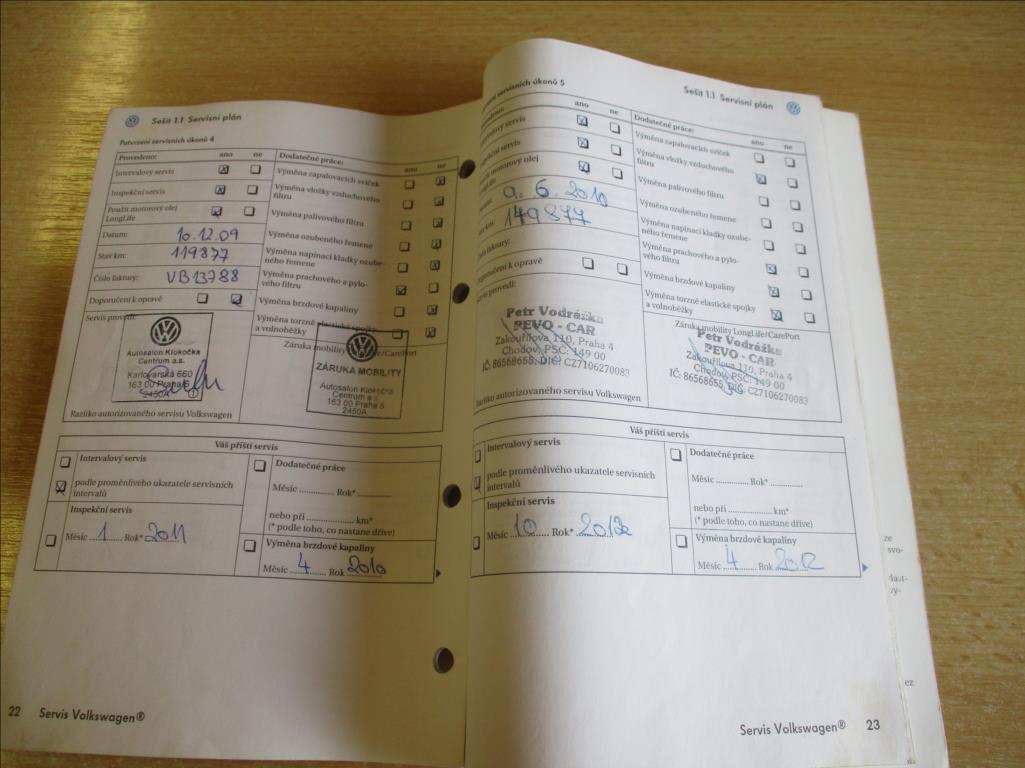 Sešit 1.1 Servisní plán
Potvrzení servisních úkonů 4
Provedeno: ano ne Dodatečné práce: ano ne
Intervalový servis
Výměna zapalovacích svíček
Inspekční servis
Výměna vložky vzduchového filtru
Použit motorový olej LongLife
Výměna palivového filtru
Datum: 10.12.09
Výměna ozubeného řemene
Stav km: 119877
Výměna napínací kladky ozubeného řemene
Číslo faktury: VB13788
Výměna prachového a pylového filtru
Doporučení k opravě
Výměna brzdové kapaliny
Výměna torzně elastické spojky a volnoběžky
Servis provedl:
Autosalon Klokočka
Centrum a.s.
Karlovarská 660
163 00 Praha 6
2450A
Záruka mobility /CarePort
ZÁRUKA MOBILITY
Autosalon Klokočka
Centrum a.s.
163 00 Praha 6
2450A
Razítko autorizovaného servisu Volkswagen
Váš příští servis
Intervalový servis
podle proměnlivého ukazatele servisních
intervalů
Inspekční servis
Měsíc 1 Rok* 2011
Dodatečné práce
Měsíc .............. Rok* ..............
nebo při .................. km*
(* podle toho, co nastane dříve)
Výměna brzdové kapaliny
Měsíc 4 Rok 2010
22 Servis Volkswagen®
Sešit 1.1 Servisní plán
servisních úkonů 5
ano ne Dodatečné práce: ano ne
servis
Výměna zapalovacích svíček
servis
Výměna vložky vzduchového
filtru
motorový olej
Výměna palivového filtru
9.6.2010
Výměna ozubeného řemene
km: 149877
Výměna napínací kladky ozube-
ného řemene
faktury:
Výměna prachového a pylo-
vého filtru
k opravě
Výměna brzdové kapaliny
Výměna torzně elastické spojky
a volnoběžky
provedl:
Petr Vodrážka
PEVO - CAR
Zakouřilova 110, Praha 4
Chodov, PSČ: 149 00
IČ: 86568655, DIČ: CZ7106270083
Záruka mobility LongLife/CarePort
Petr Vodrážka
PEVO - CAR
Zakouřilova 110, Praha 4
Chodov, PSČ: 149 00
IČ: 86568655, DIČ: CZ7106270083
Razítko autorizovaného servisu Volkswagen
Váš příští servis
Intervalový servis
podle proměnlivého ukazatele servisních
intervalů
Inspekční servis
Měsíc 10 Rok* 2012
Dodatečné práce
Měsíc .............. Rok* ..............
nebo při .................. km*
(* podle toho, co nastane dříve)
Výměna brzdové kapaliny
Měsíc 4 Rok 2012
Servis Volkswagen® 23